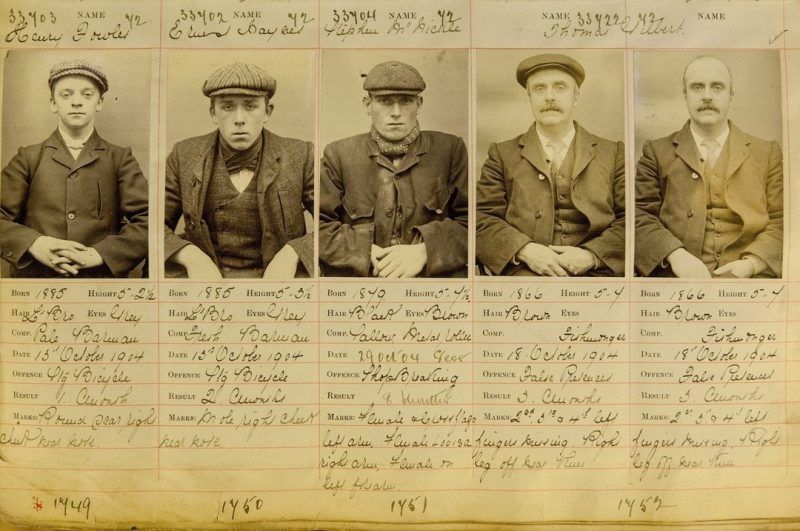 33703 NAME 42
Henry Fowles
33702 NAME 42
Ernest Haynes
33704 NAME 42
Stephen McNickle
NAME 33722 42
Thomas Gilbert.
NAME
BORN 1885 HEIGHT 5-2½
HAIR Lt Bro EYES Grey
COMP. Pale Barman
DATE 15" October 1904
OFFENCE Stg Bicycle
RESULT 1. C Month
MARKS: Round scar right
cheek near nose.
* 1749
BORN 1885 HEIGHT 5-3½
HAIR Lt Bro EYES Grey
COMP. Fresh Barman
DATE 15" October 1904
OFFENCE Stg Bicycle
RESULT 2. C Months
MARKS: Mole right cheek
near nose
1750
BORN 1879 HEIGHT 5-4½
HAIR Black EYES Brown
COMP. Sallow Metal roller
DATE 29 Oct 04
OFFENCE Shop Breaking
RESULT Months
MARKS: Female & Cross flags
left arm, Female Louisa
right arm, Female on
left forearm
1751
BORN 1866 HEIGHT 5-4
HAIR Brown EYES
COMP. Fishmonger
DATE 18" October 1904
OFFENCE False Pretences
RESULT 3. C Months
MARKS: 2nd, 3rd & 4th left
fingers missing. Right
leg off near knee
BORN 1866 HEIGHT 5-4
HAIR Brown EYES
COMP. Fishmonger
DATE 18" October 1904
OFFENCE False Pretences
RESULT 3. C Months
MARKS: 2nd 3rd & 4th left
fingers missing. Right
leg off near knee.
1752